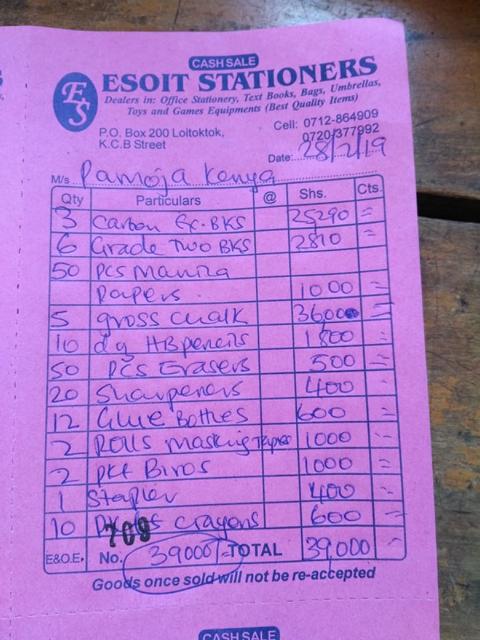 CASH SALE
ES ESOIT STATIONERS
Dealers in: Office Stationery, Text Books, Bags, Umbrellas,
Toys and Games Equipments (Best Quality Items)
P.O. Box 200 Loitoktok,
K.C.B Street
Cell: 0712-864909
0720/377992
Date: 28/2/19
M/s Pamoja Kenya
Qty Particulars @ Shs. Cts.
3 Carbon Ex-BKS 25290 =
6 Grade Two BKS 2810 =
50 PCS Manila
Papers 1000 =
5 gross chalk 3600 =
10 dz HB pencils 1800 =
50 PCS Erasers 500 =
20 Sharpeners 400 =
12 Glue Bottles 600 =
2 Rolls masking Tapes 1000 =
2 pkt Biros 1000 =
1 Stapler 400 =
10 crayons 600 =
E&O.E. No. 709 39000/- TOTAL 39,000 =
Goods once sold will not be re-accepted
CASH SALE